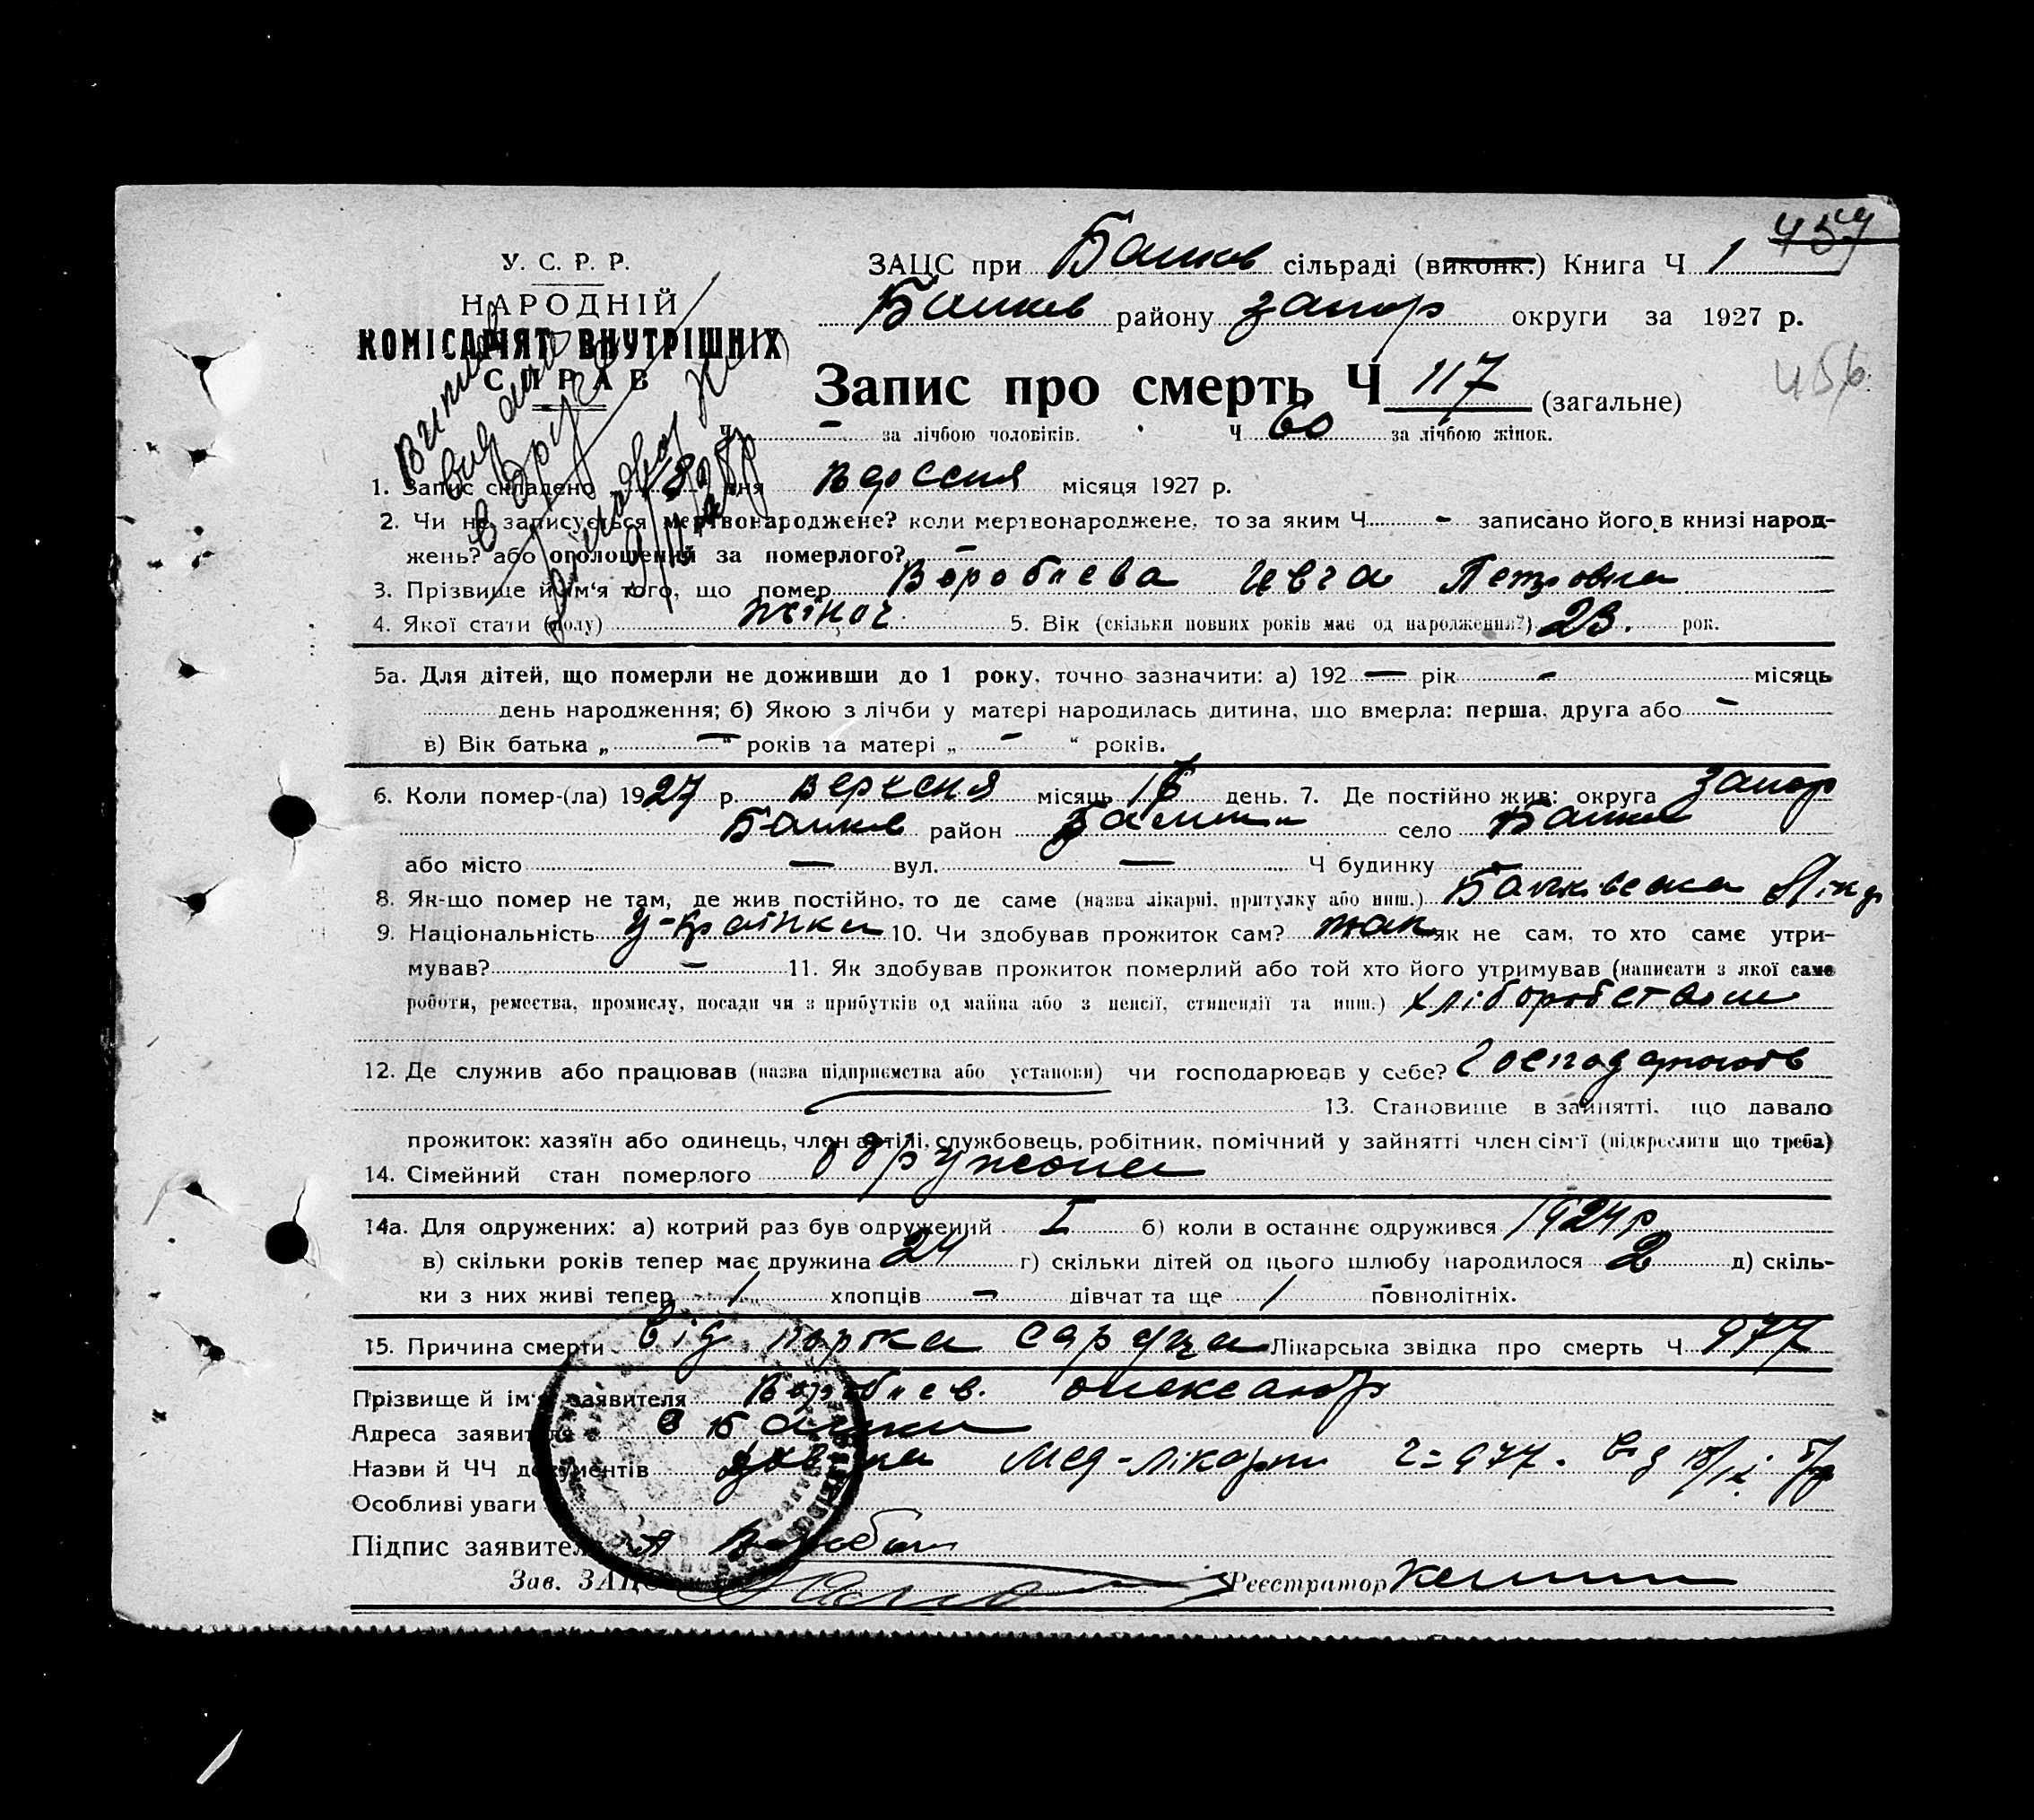 457
У. С. Р. Р.
НАРОДНІЙ
КОМІСАРІЯТ ВНУТРІШНІХ
СПРАВ
ЗАЦС при Балков сільраді (виконк.) Книга Ч 1
Балков району Запор округи за 1927 р.
456
Запис про смерть Ч 117 (загальне)
Ч — за лічбою чоловіків. Ч 60 за лічбою жінок.
1. Запис складено 18 дня Вересня місяця 1927 р.
2. Чи не записується мертвонароджене? коли мертвонароджене, то за яким Ч - записано його в книзі народ-
жень? або оголошений за померлого? —
3. Прізвище й ім'я того, що помер Воробйева Ивга Петровна
4. Якої стати (полу) жіноч. 5. Вік (скільки повних років має од народження?) 23. рок.
5а. Для дітей, що померли не доживши до 1 року, точно зазначити: а) 192 — рік - місяць
день народження; б) Якою з лічби у матері народилась дитина, що вмерла: перша, друга або -
в) Вік батька „ — “ років та матері „ - “ років.
6. Коли помер-(ла) 1927 р. Вересня місяць день. 7. Де постійно жив: округа Запор
Балков район село Балки
або місто — вул. — Ч будинку -
8. Як-що помер не там, де жив постійно, то де саме (назва лікарні, притулку або инш.) Балківска Лікр
9. Національність У-країнка 10. Чи здобував прожиток сам? так як не сам, то хто саме утри-
мував? - 11. Як здобував прожиток померлий або той хто його утримував (написати з якої саме
роботи, ремества, промислу, посади чи з прибутків од майна або з пенсії, стипендії та инш.) хліборобством
12. Де служив або працював (назва підприємства або установи) чи господарював у себе?
13. Становище в зайнятті, що давало
прожиток: хазяїн або одинець, член артілі, службовець, робітник, помічний у зайнятті член сім'ї (підкреслити що треба)
14. Сімейний стан померлого одружона
14а. Для одружених: а) котрий раз був одружений I б) коли в останнє одружився 1924 р
в) скільки років тепер має дружина 24 г) скільки дітей од цього шлюбу народилося 2 д) скіль-
ки з них живі тепер 1 хлопців - дівчат та ще / повнолітніх.
15. Причина смерти Від порка сардца Лікарська звідка про смерть Ч 977
Прізвище й ім'я заявителя Воробйев. олександр
Адреса заявителя с Балки
Назви й ЧЧ документів Мед-лікарни ч= 977. від
Особливі уваги
Підпис заявителя А
Зав. ЗАЦС Реєстратор